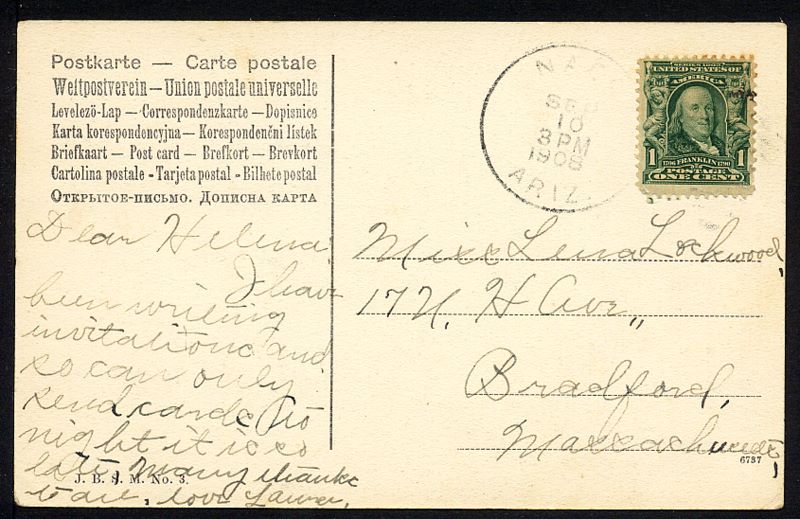 Postkarte — Carte postale
Weltpostverein — Union postale universelle
Levelező-Lap — Correspondenzkarte — Dopisnice
Karta korespondencyjna — Korespondenční lístek
Briefkaart — Post card — Brefkort — Brevkort
Cartolina postale - Tarjeta postal - Bilhete postal
Открытое-письмо. Дописна карта
Dear Helena
I have
been writing
invitations and
so can only
send cards to
night it is so
late many thanks
to all, love Laura.
J. B. & M. No. 3.
SEP
10
3 PM
1908
ARIZ.
SERIES 1902
UNITED STATES OF
AMERICA
1706 FRANKLIN 1790
1 POSTAGE 1
ONE CENT
Miss Lena Lockwood,
17 N. H Ave.,
Bradford,
Massachusetts,
6737